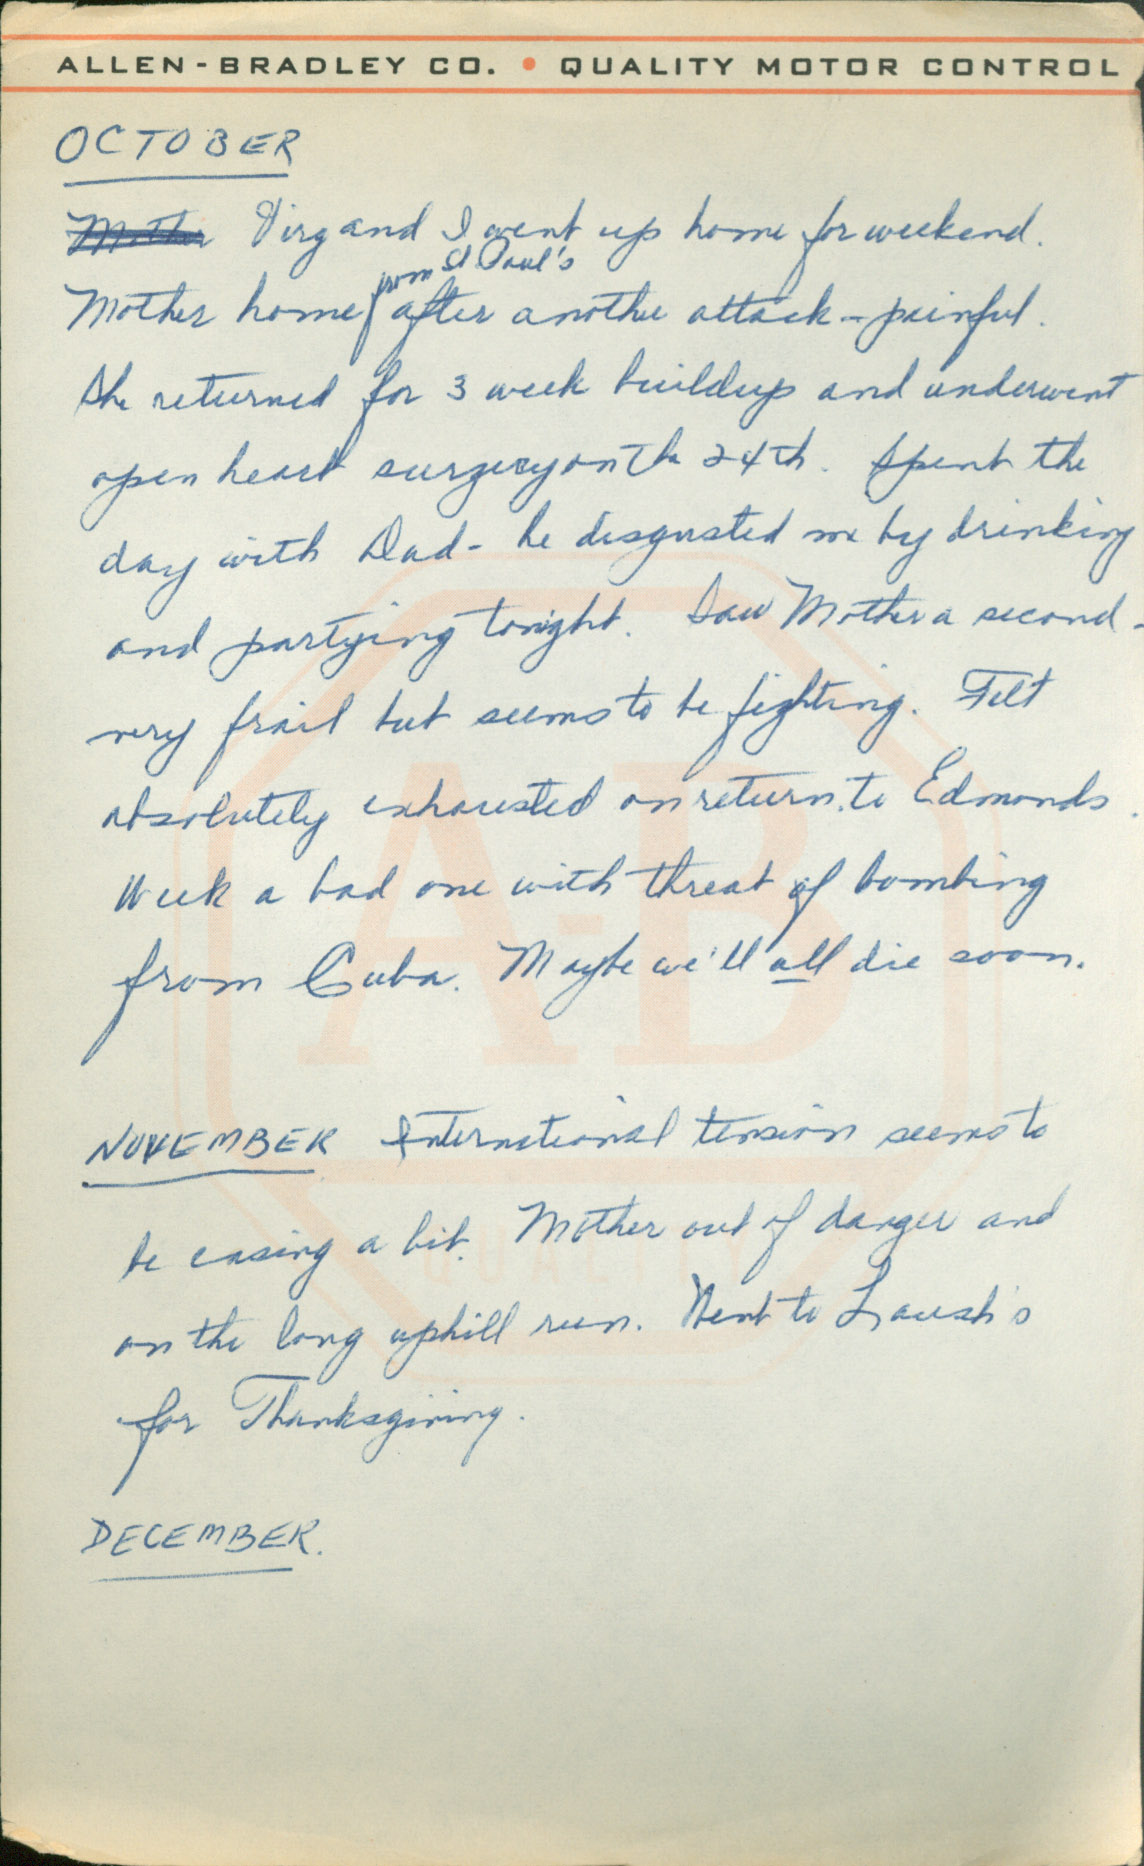 ALLEN-BRADLEY CO. • QUALITY MOTOR CONTROL
OCTOBER
Mother Virg and I went up home for weekend.
from St Paul's
Mother home after another attack - painful.
She returned for 3 week buildup and underwent
open heart surgery on the 24th. Spent the
day with Dad - he disgusted me by drinking
and partying tonight. Saw Mother a second -
very frail but seems to be fighting. Felt
absolutely exhausted on return to Edmonds.
Week a bad one with threat of bombing
from Cuba. Maybe we'll all die soon.
NOVEMBER International tension seems to
be easing a bit. Mother out of danger and
on the long uphill run. Went to
for Thanksgiving.
DECEMBER.
A-B
QUALITY